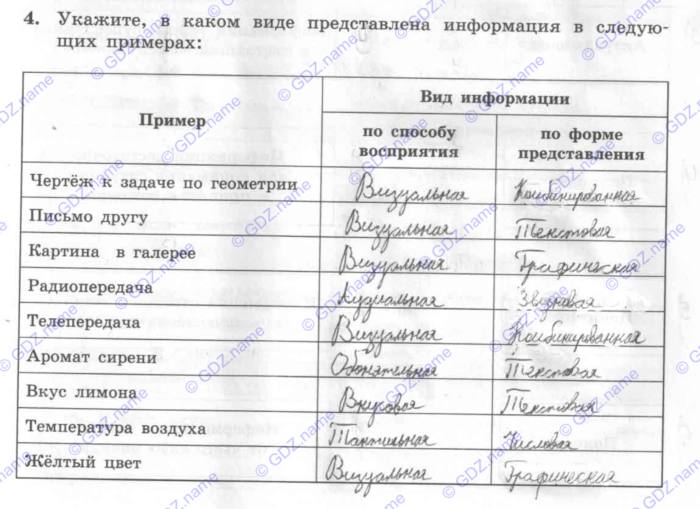 4. Укажите, в каком виде представлена информация в следую-
щих примерах:
Пример
Вид информации
по способу восприятия
по форме представления
Чертёж к задаче по геометрии Визуальная Комбинированная
Письмо другу Визуальная Текстовая
Картина в галерее Визуальная Графическая
Радиопередача Аудиальная Звуковая
Телепередача Визуальная Комбинированная
Аромат сирени Обонятельная Текстовая
Вкус лимона Вкусовая Текстовая
Температура воздуха Тактильная Числовая
Жёлтый цвет Визуальная Графическая
© GDZ.name